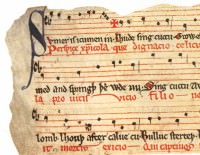 Svmer is icumen in Lhude sing cuccu Groweþ
Perspice xp̄icola que dignacio celicus
med and springþ þe wde nu Sing cuccu
la pro uicis vicio filio
lomb lhouþ after calue cu Bulluc sterteþ
mortis exicio captiuos